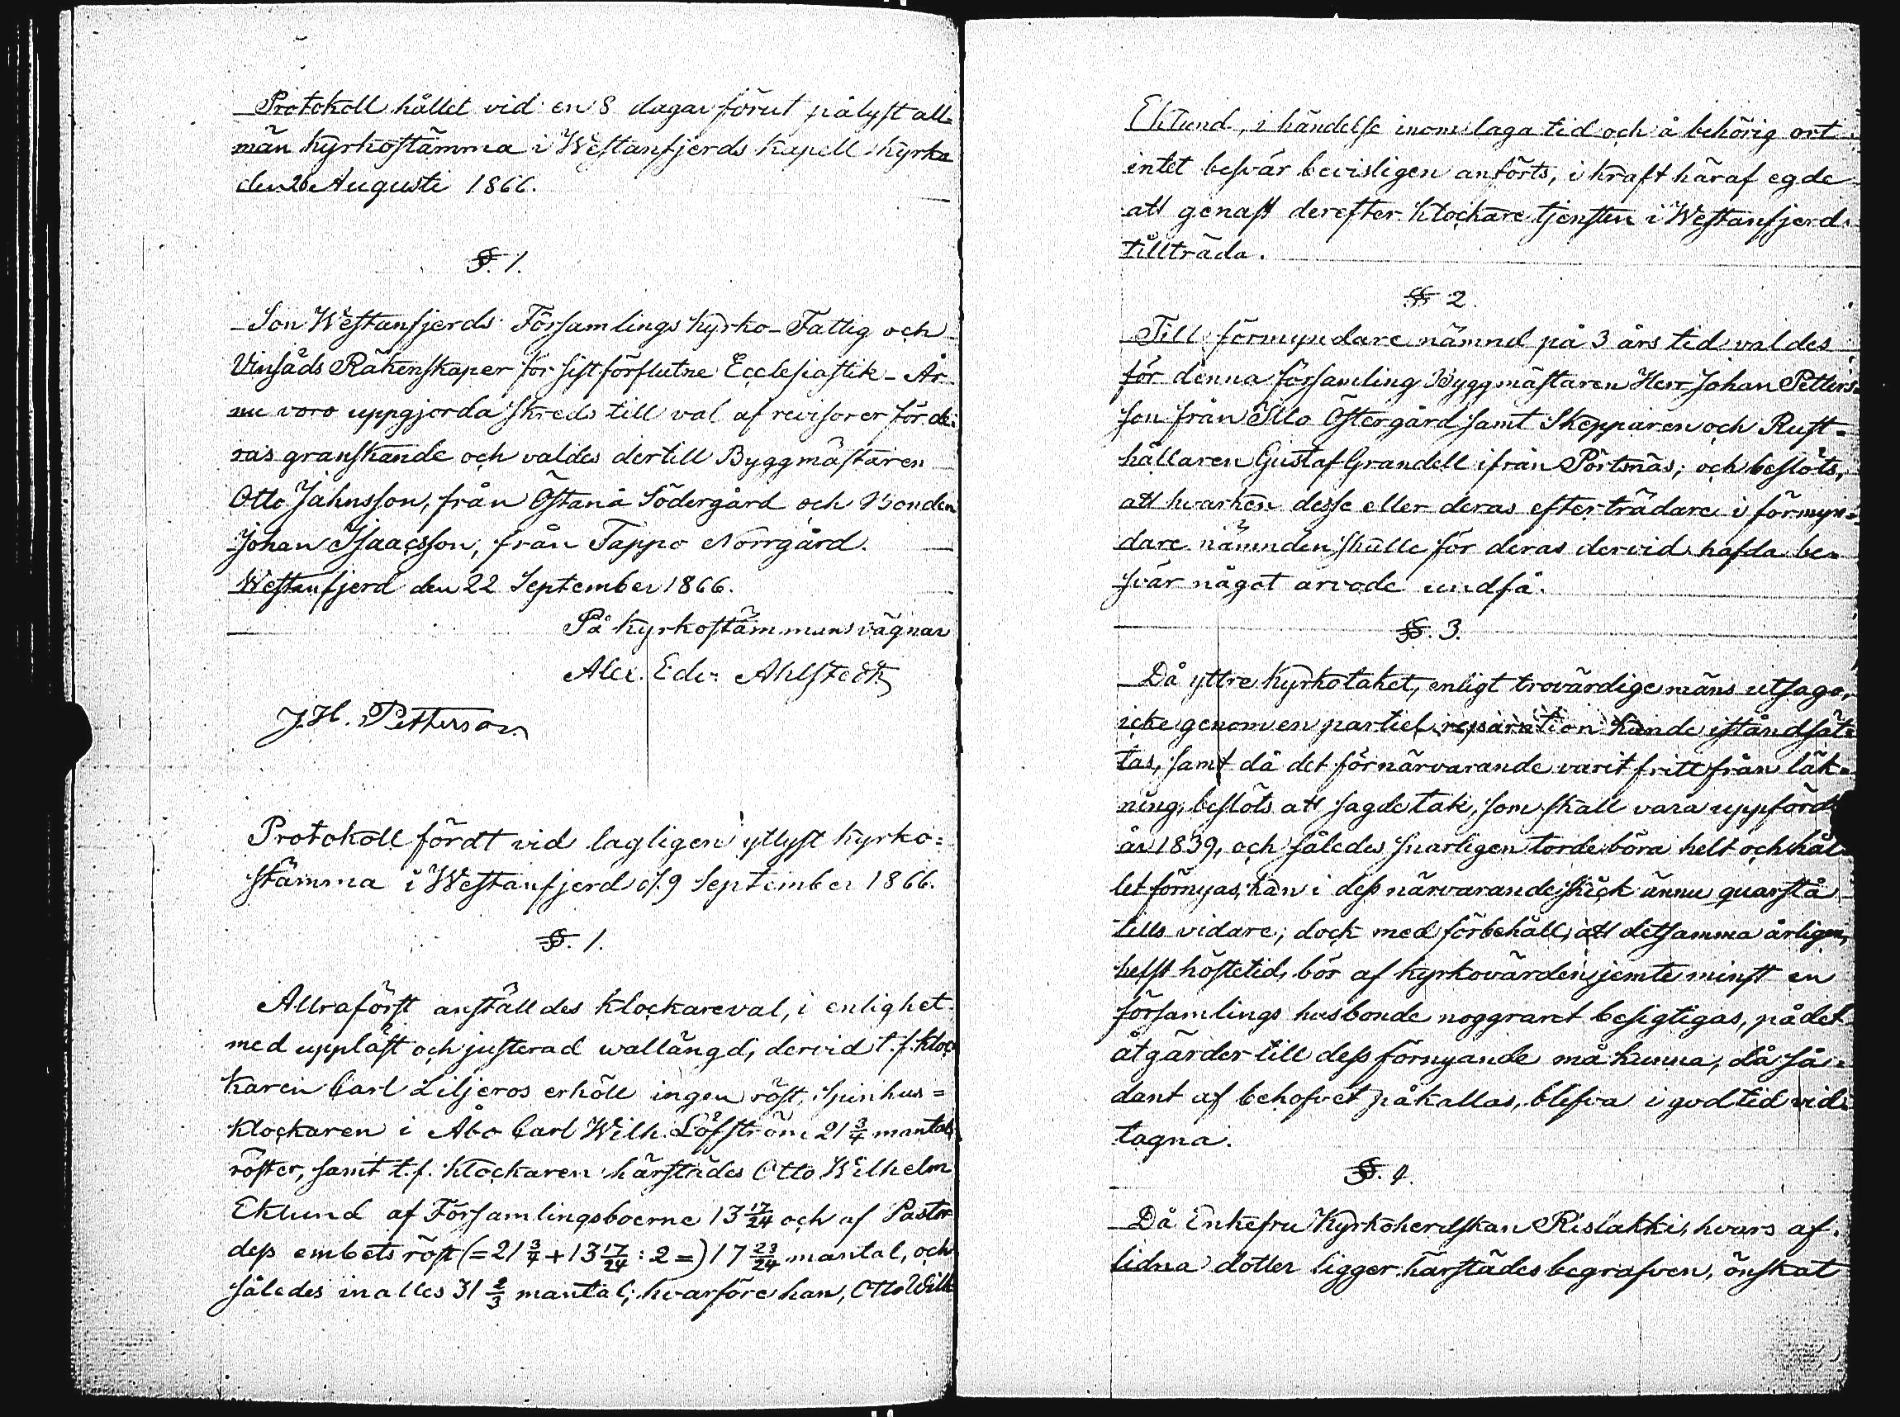 Protokoll hållet vid en 8 dagar förut pålyst all-
män Kyrkostämma i Westanfjerds Kapell Kyrka
den 26 Augusti 1866.
§. 1.
Son Westanfjerds Församlings Kyrko- Fattig och
Vinsåds Räkenskaper för sistförflutne Ecclesiastik- År
nu voro uppgjorda skreds till val af revisorer för de-
ras granskande och valdes dertill Byggmästaren
Otto Jahnsson, från Östanå Södergård och Bonden
Johan Isaacsson, från Tappo Norrgård.
Westanfjerd den 22 September 1866.
På Kyrkostämmans vägnar
Alex. Edv. Ahlstedt
J.H. Petterson
Protokoll fördt vid lagligen utlyst Kyrko=
stämma i Westanfjerd d. 9 September 1866.
§. 1.
Allraförst anställdes Klockareval, i enlighet
med uppläst och justerad wallängd; dervid t.f. Kloc
karen Carl Liljeros erhöll ingen röst, Spinhus=
klockaren i Åbo Carl Wilh. Löfström 21 3/4 mantals
röster, samt t.f. Klockaren härstädes Otto Wilhelm
Eklund af Församlingsboerne 13 17/24 och af Pastor
dess embets röst (= 21 3/4 + 13 17/24 : 2 =) 17 23/24 mantal, och
således inalles 31 2/3 mantal; hvarföre han, Otto Wilh
Eklund, i händelse inom laga tid och å behörig ort
intet besvär bevisligen anförts, i kraft häraf egde
att genast derefter Klockare tjensten i Westanfjerd
tillträda.
§ 2.
Till förmyndare nämnd på 3 års tid valdes
för denna församling Byggmästaren Herr Johan Petters=
son från Illo Östergård samt Skepparen och Rust=
hållaren Gustaf Grandell ifrån Pörtsnäs; och beslöts,
att hvarken desse eller deras efterträdare i förmyn=
dare nämnden skulle för deras dervid hafda be=
svär något arvode undfå.
§. 3.
Då yttre Kyrkotaket, enligt trovärdige mäns utsago,
icke genom en partiel reparation kunde iståndsät=
tas, samt då det förnärvarande varit fritt från läk=
ning; beslöts att sagde tak, som skall vara uppfördt
år 1839, och således snarligen torde böra helt och hål
let förnyas, kan i dess närvarande skick ännu quarstå
tills vidare; dock med förbehåll, att detsamma årligen,
helst höstetid, bör af kyrkovärden jemte minst en
församlings husbonde noggrant besigtigas, på det
åtgärder till dess förnyande må kunna, då så=
dant af behofvet påkallas, blifva i god tid vid=
tagna.
§. 4.
Då Enkefru Kyrkoherdskan Rislakki, hvars af=
lidna dotter ligger härstädes begrafven, önskat